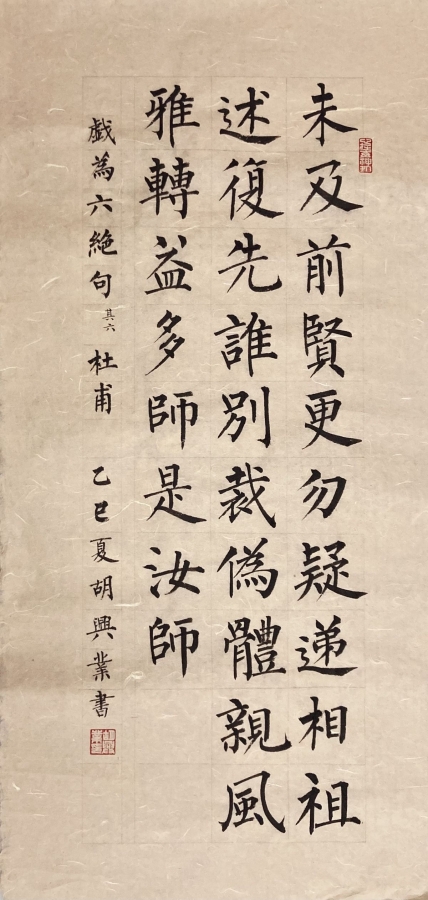 未及前賢更勿疑递相祖
述復先誰別裁偽體親風
雅轉益多師是汝師
戲為六絕句其六 杜甫 乙巳夏胡興業書